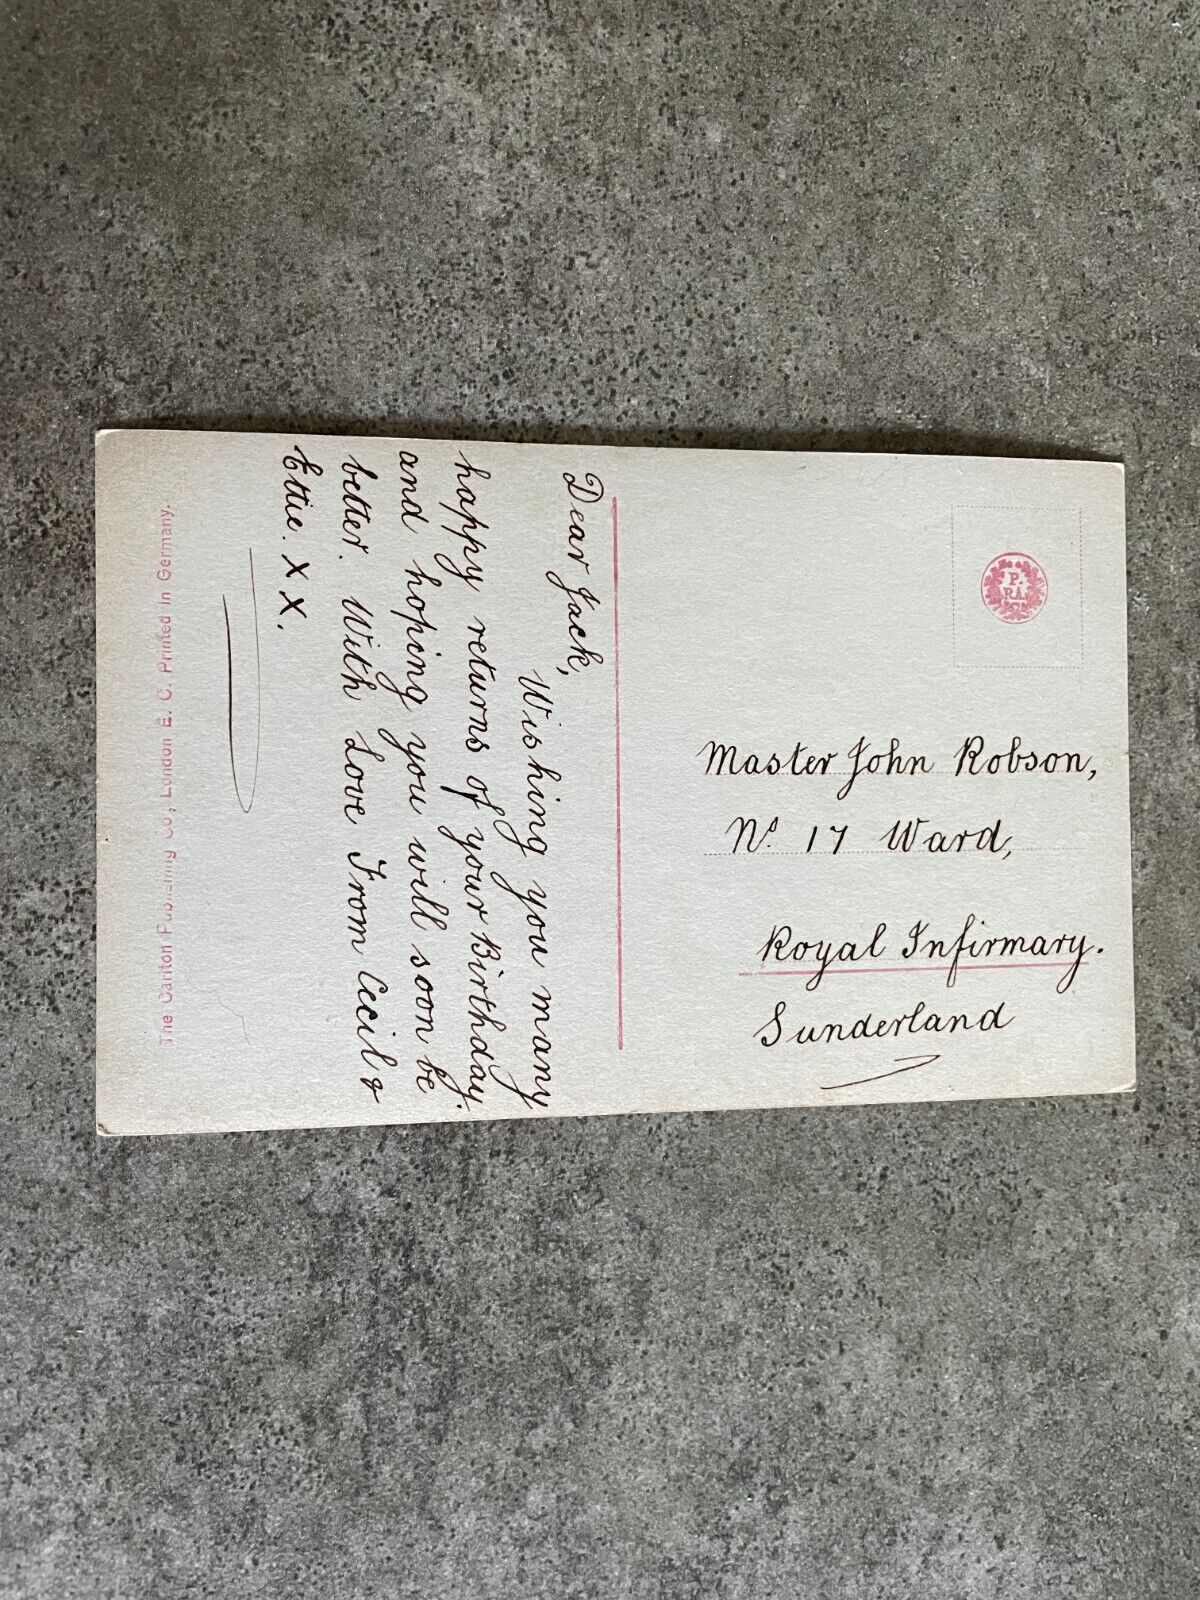 Dear Jack,
Wishing you many
happy returns of your Birthday.
and hoping you will soon be
better. With Love From Cecil &
Ettie. X X.
Master John Robson,
No. 17 Ward,
Royal Infirmary.
Sunderland
P.
R.A.
The Carlton Publishing Co., London E. C. Printed in Germany.